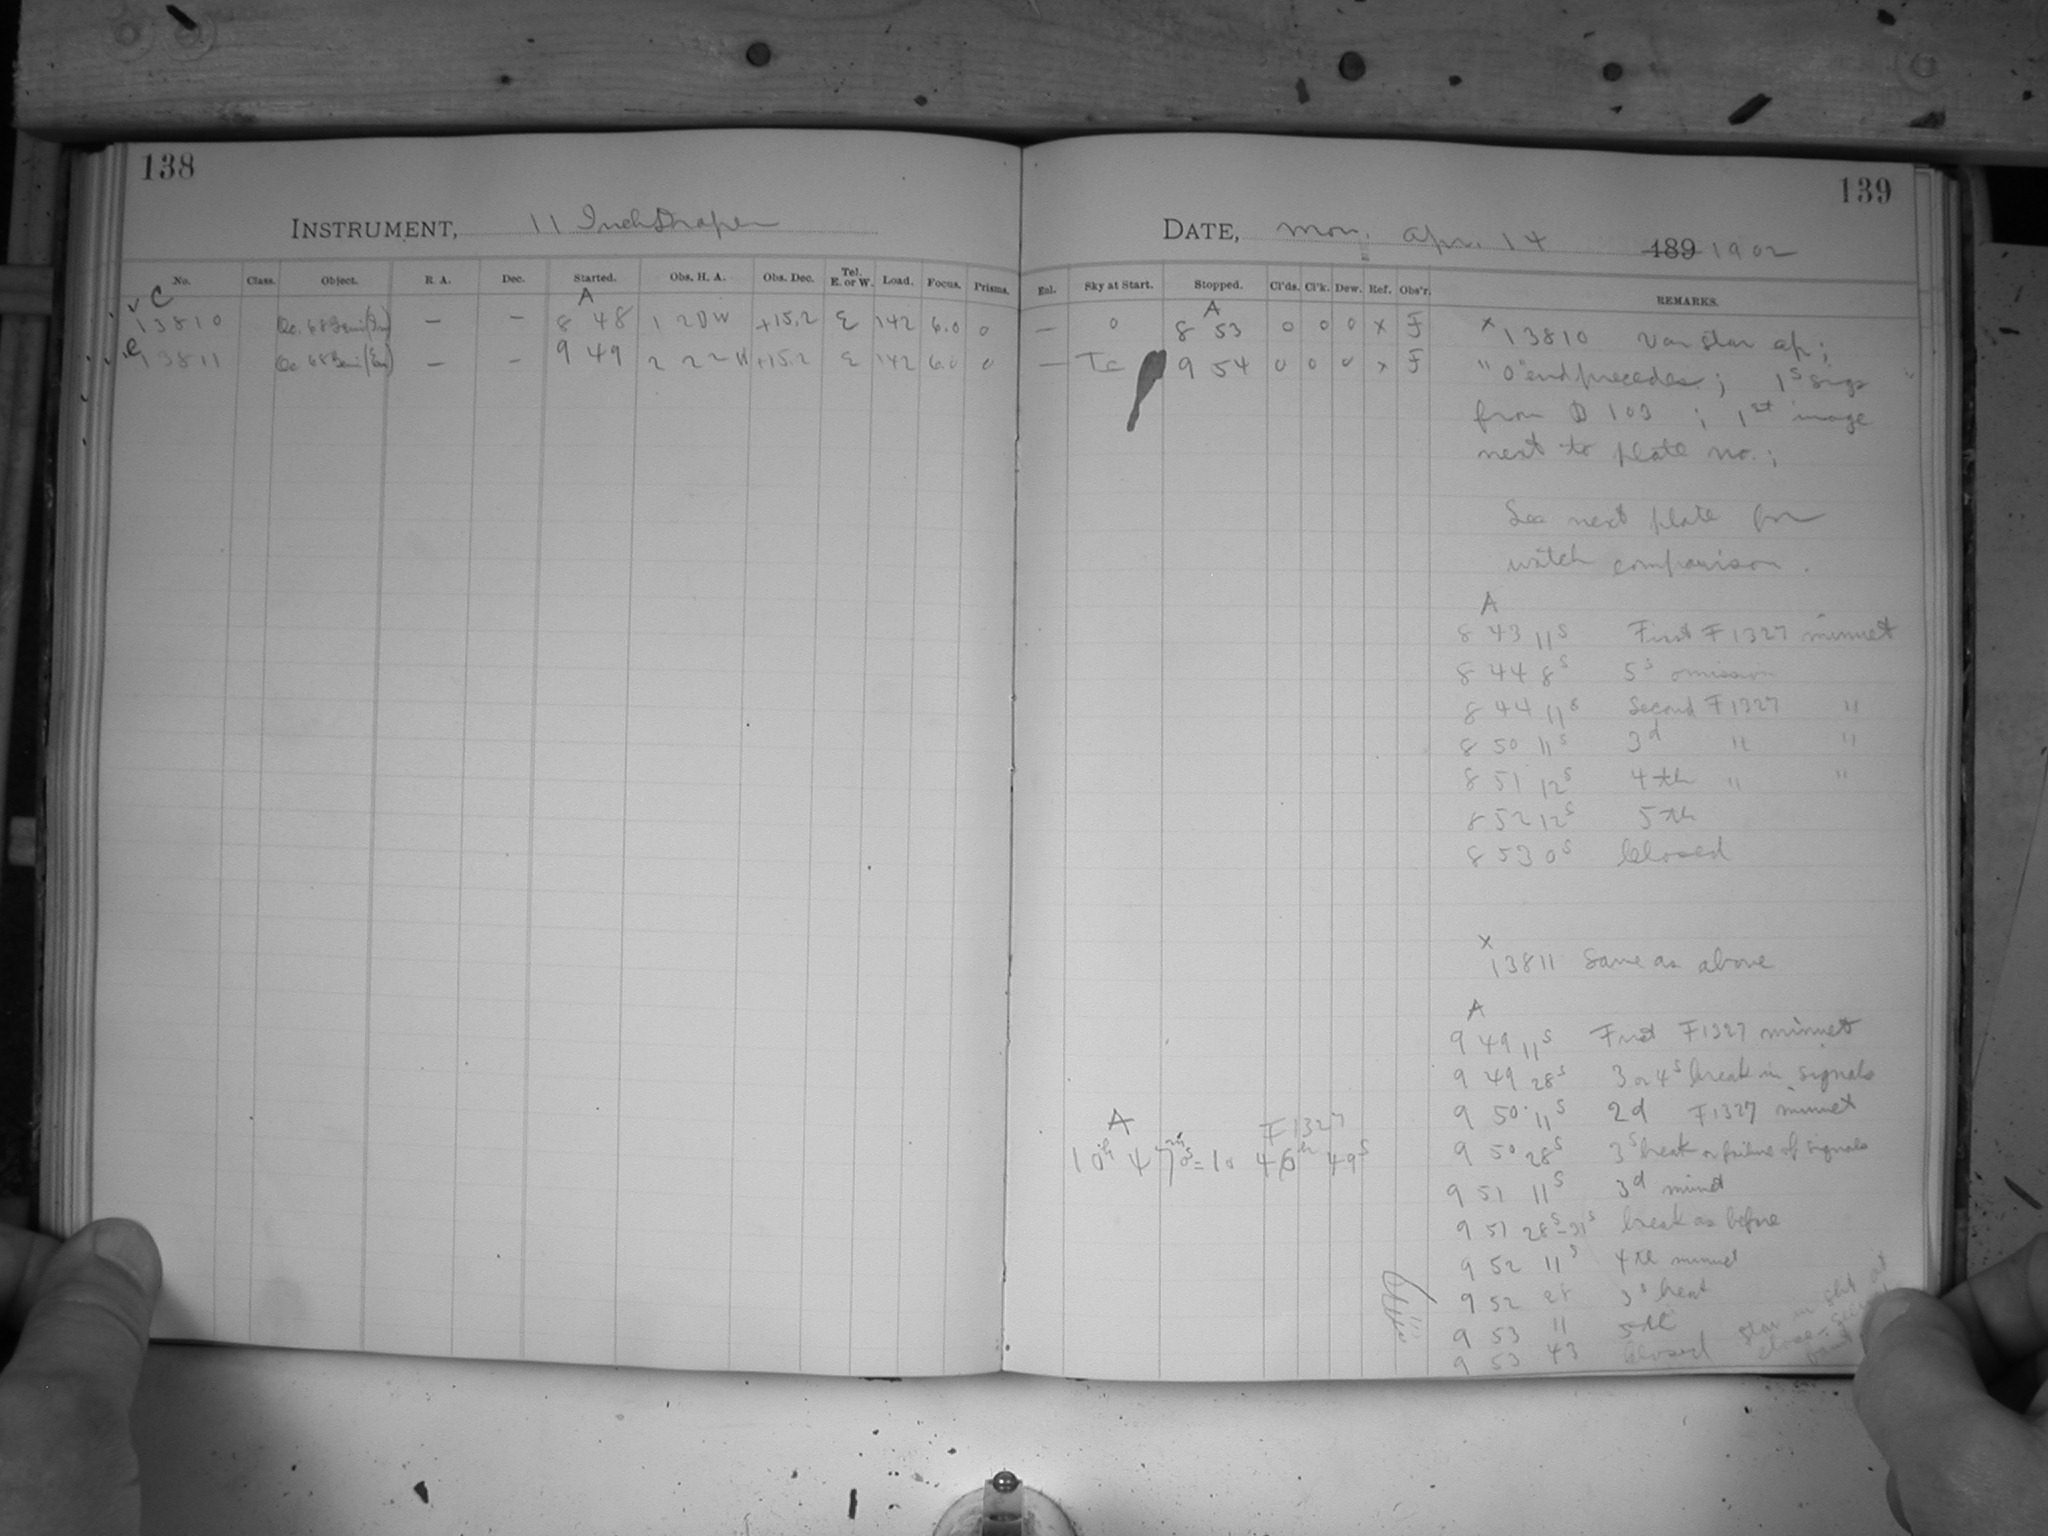 138
INSTRUMENT, 11 Inch Draper
No. Class. Object. R. A. Dec. Started. Obs. H. A. Obs. Dec. Tel. E. or W. Load. Focus. Prisms.
A
C 13810 Oc. 68 Gemi (Im) — — 8 48 1 20 W +15.2 E 142 6.0 0
C 13811 Oc 68 Gemi (Em) — — 9 49 2 22 W +15.2 E 142 6.0 0
139
DATE, Mon. Apr. 14 189 1902
Enl. Sky at Start. Stopped. Cl'ds. Cl'k. Dew. Ref. Obs'r. REMARKS.
A
— 0 8 53 0 0 0 x F
— Tc 9 54 0 0 0 x F
x 13810 Var star ap;
"0" end precedes; 1s sigs
from D 103 ; 1st image
next to plate no.;
See next plate for
watch comparison.
A
8 43 11s First F1327 minuet
8 44 8s 5s omission
8 44 11s Second F1327 "
8 50 11s 3d " "
8 51 12s 4th " "
8 52 12s 5th
8 53 0s Closed
x 13811 Same as above
A
9 49 11s First F1327 minuet
9 49 28s 3 or 4s break in signals
9 50 11s 2d F1327 minuet
9 50 28s 3s break or failure of signals
9 51 11s 3d minut
9 51 28s-31s break as before
9 52 11s 4th minuet
9 52 28 3s break
9 53 11 5th
9 53 43 Closed
star in slit at
close
A F1327
10h 47m 0s = 10 46m 49s